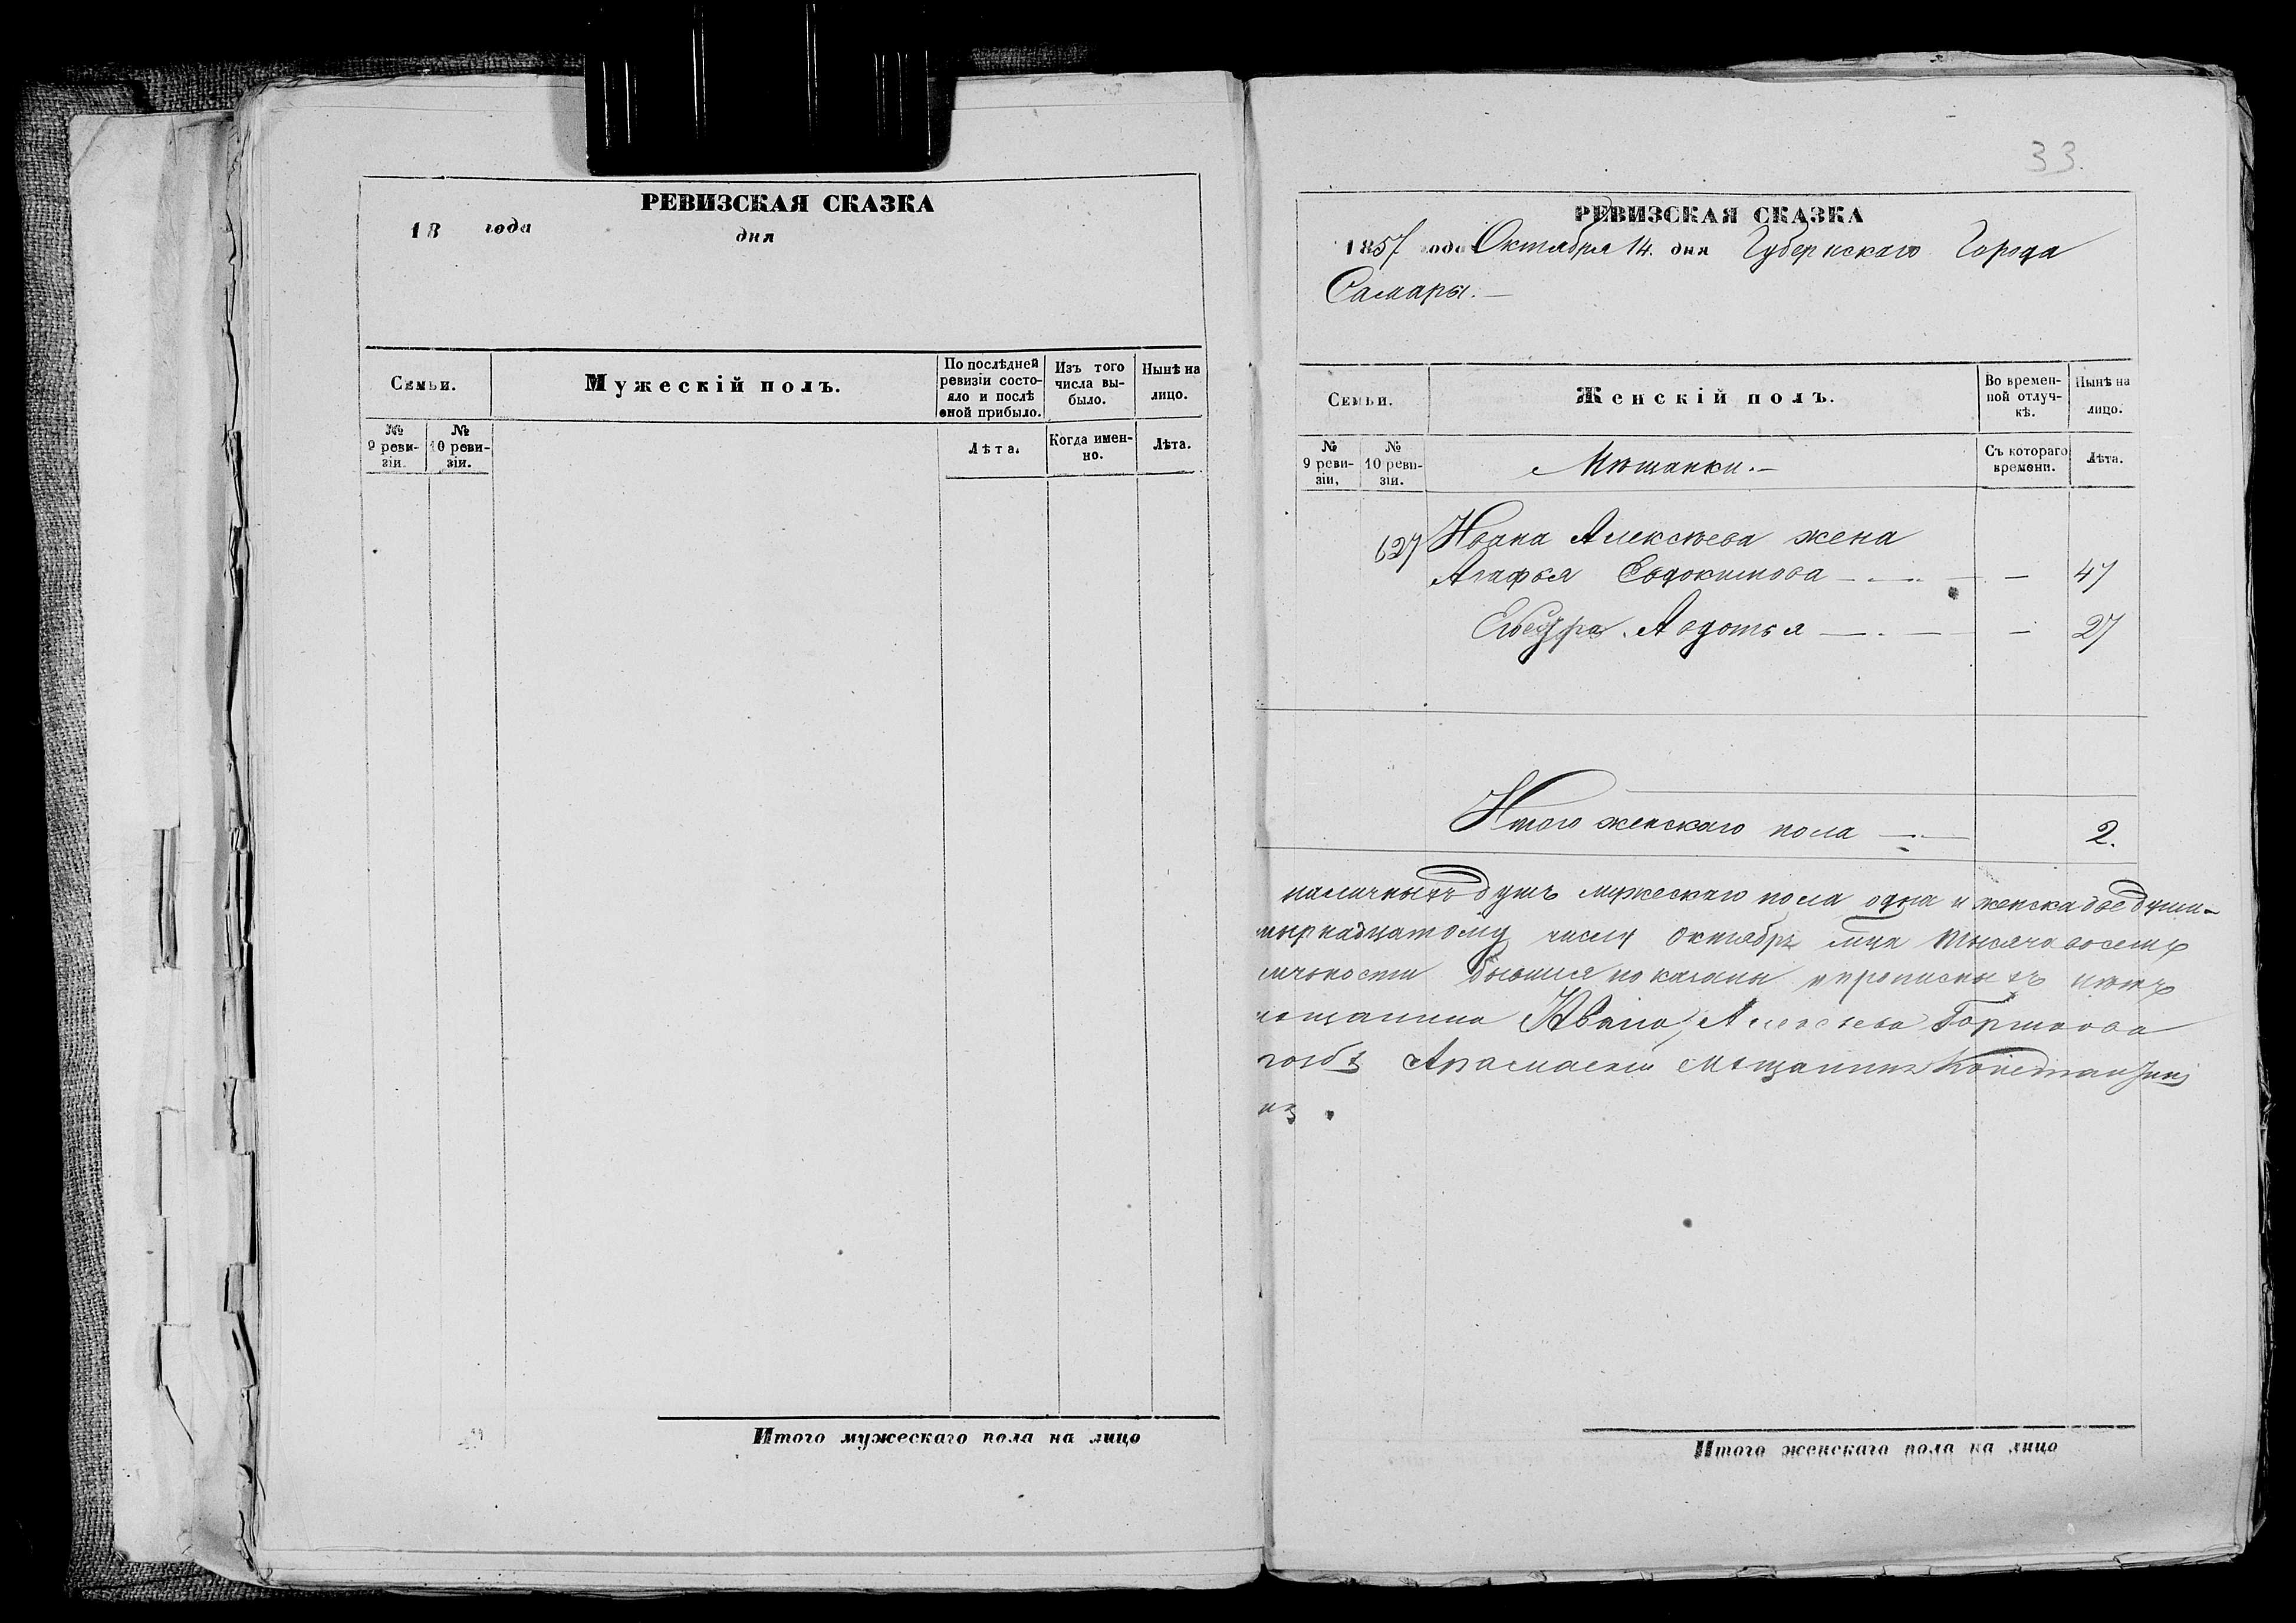 РЕВИЗСКАЯ СКАЗКА
18 года дня
Семьи.
Мужескій полъ.
По послѣдней ревизіи состояло и послѣ оной прибыло.
Изъ того числа выбыло.
Нынѣ на лицо.
№ 9 ревизіи.
№ 10 ревизіи.
Лѣта.
Когда именно.
Лѣта.
Итого мужескаго пола на лицо
33.
РЕВИЗСКАЯ СКАЗКА
1857 года Октября 14. дня Губернскаго Города
Самары.—
Семьи.
Женскій полъ.
Во временной отлучкѣ.
Нынѣ на лицо.
№ 9 ревизіи,
№ 10 ревизіи.
Мѣщанки.—
Съ котораго времени.
Лѣта.
627 Ивана Алексѣева жена
Агафья Евдокимова — — 47
Авдотья — — 27
Итого женскаго пола — 2.
наличныхъ душъ мужескаго пола одна и женска двѣ души
числу Октября мца тысяча восемь
Ивана Алексѣева Горшкова
Арзамаскій мѣщанинъ Констан
Итого женскаго пола на лицо